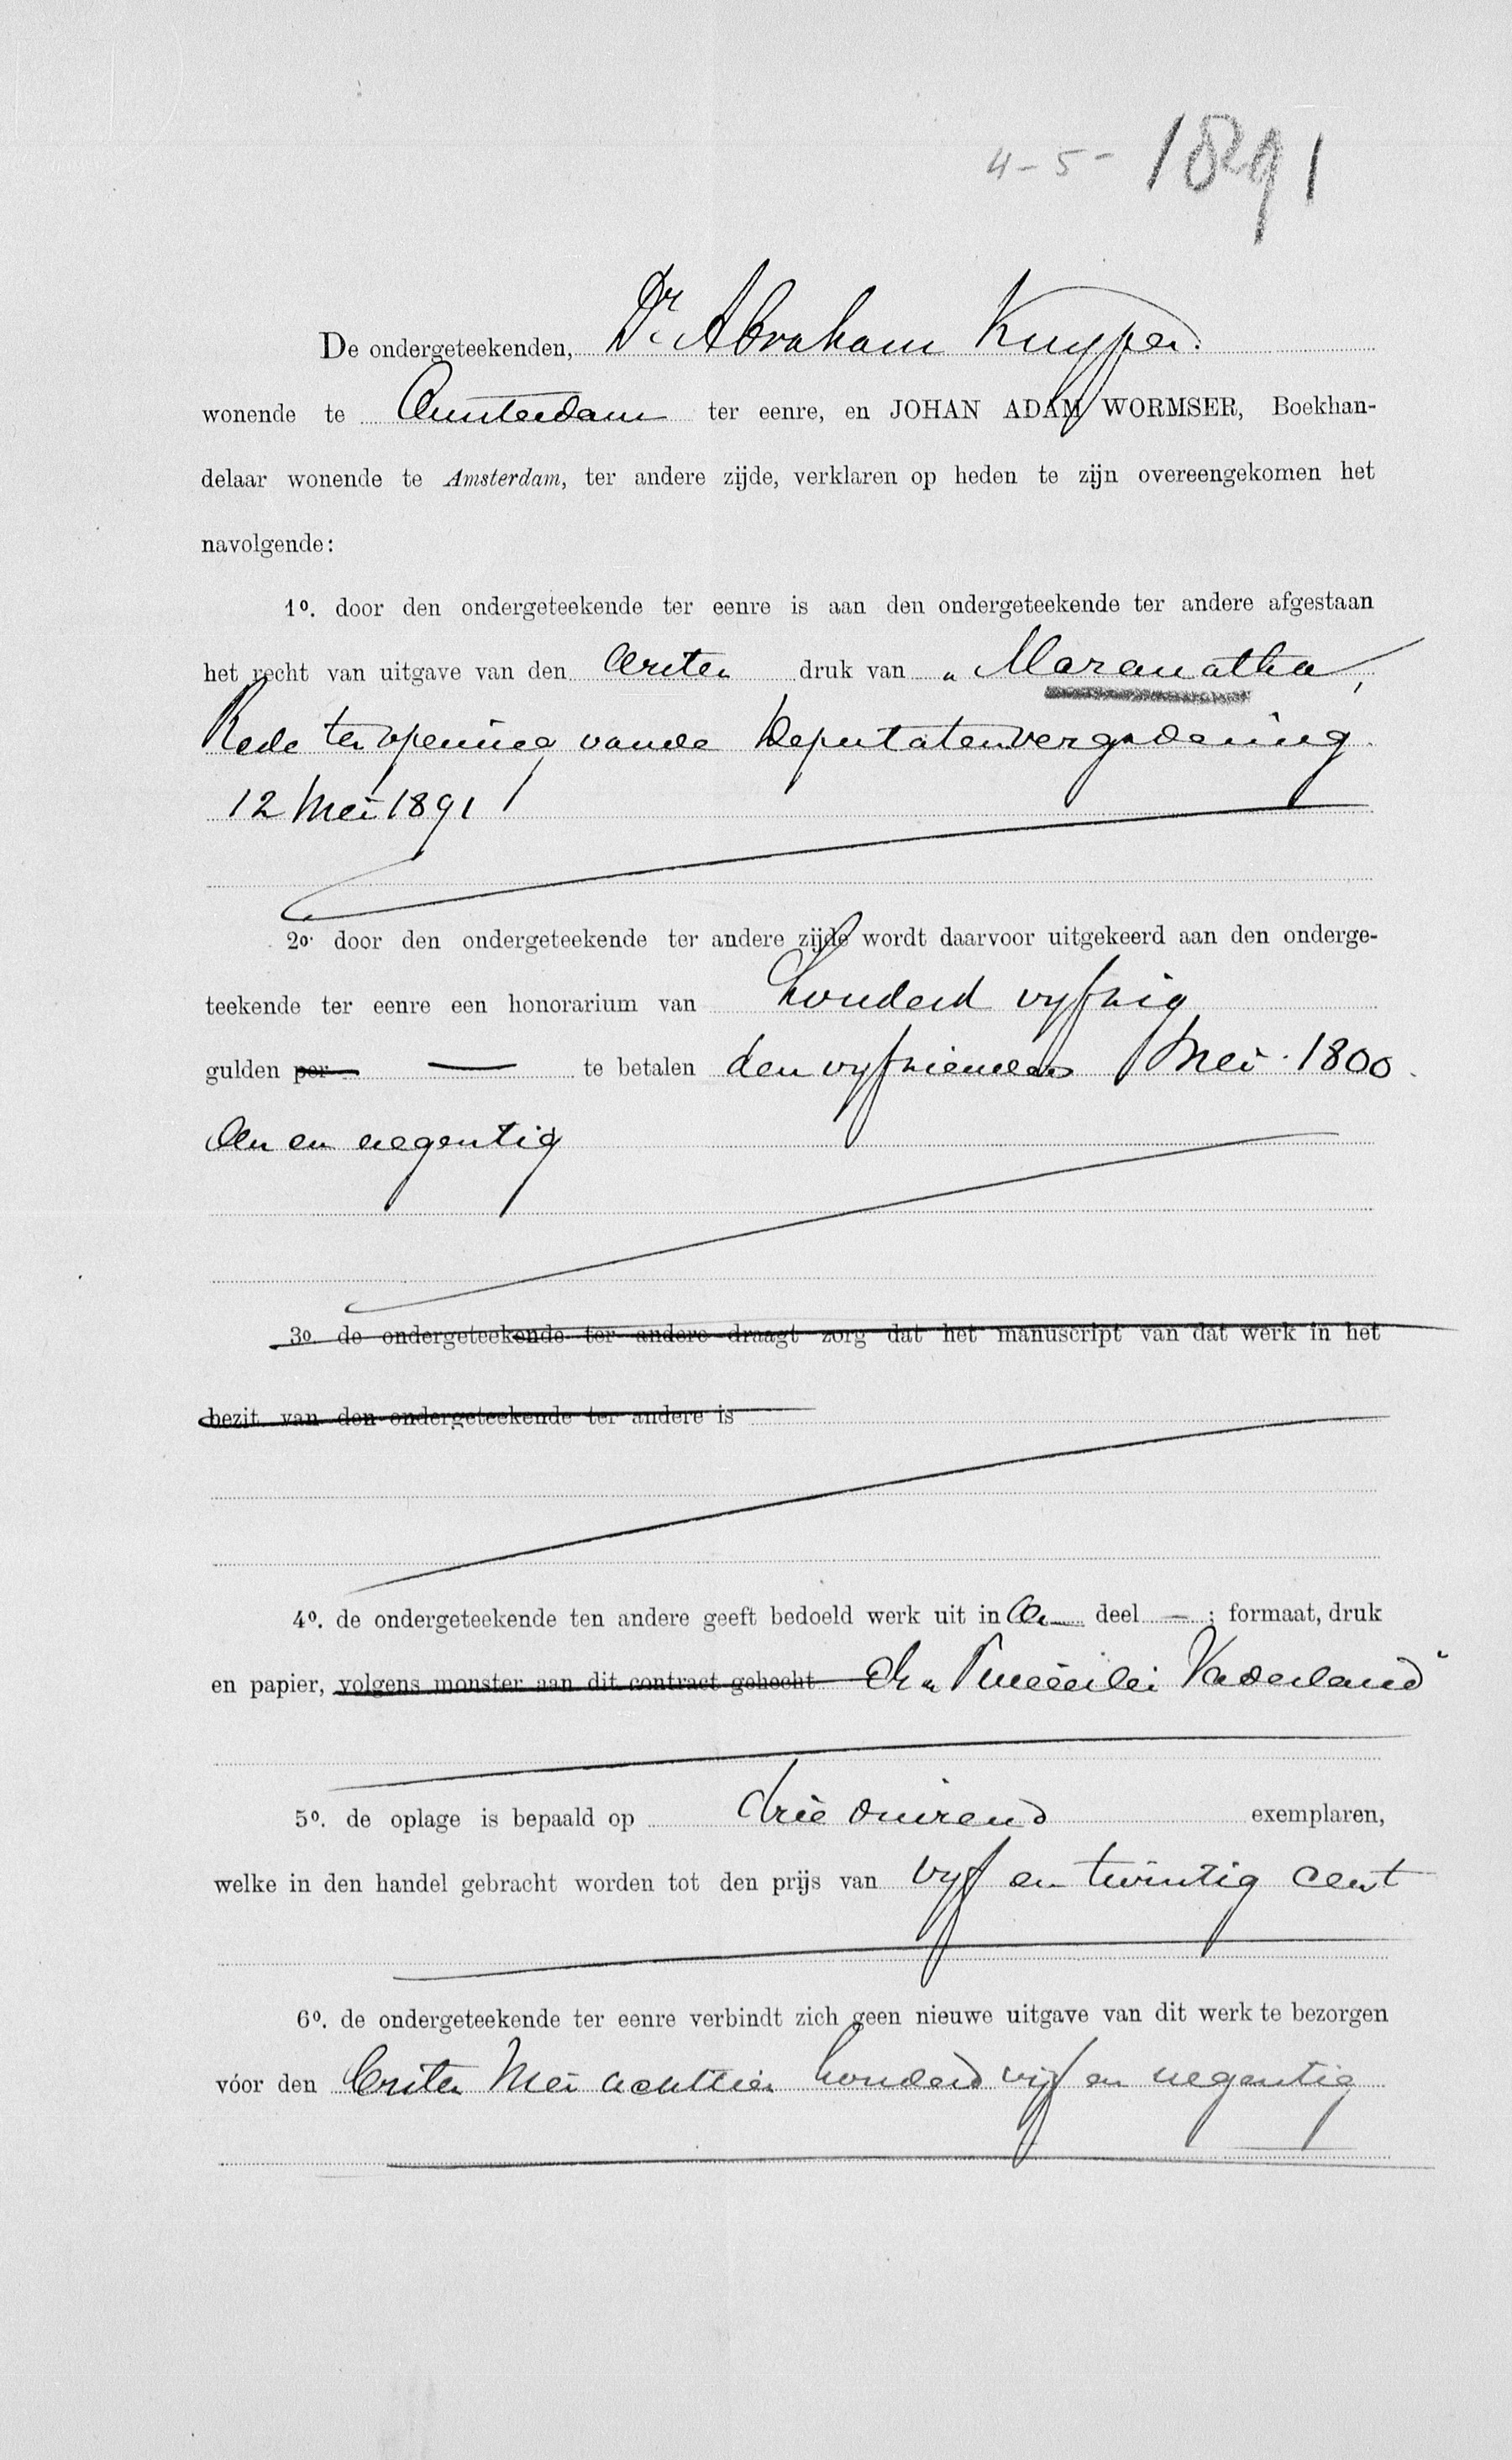 4-5- 1891
De ondergeteekenden, Dr. Abraham Kuyper.
wonende te Amsterdam ter eenre, en JOHAN ADAM WORMSER, Boekhan-
delaar wonende te Amsterdam, ter andere zijde, verklaren op heden te zijn overeengekomen het
navolgende:
1o. door den ondergeteekende ter eenre is aan den ondergeteekende ter andere afgestaan
het recht van uitgave van den eersten druk van „Maranatha,
Rede ter opening van de Deputatenvergadering
12 Mei 1891
2o. door den ondergeteekende ter andere zijde wordt daarvoor uitgekeerd aan den onderge-
teekende ter eenre een honorarium van honderd vyftig
gulden per — te betalen den vyftienden Mei 1800
een en negentig
3o. de ondergeteekende ter andere draagt zorg dat het manuscript van dat werk in het
bezit van den ondergeteekende ter andere is
4o. de ondergeteekende ten andere geeft bedoeld werk uit in een deel — ; formaat, druk
en papier, volgens monster aan dit contract gehecht Vaderland"
5o. de oplage is bepaald op drie duizend exemplaren,
welke in den handel gebracht worden tot den prijs van vyf en twintig cent
6o. de ondergeteekende ter eenre verbindt zich geen nieuwe uitgave van dit werk te bezorgen
vóor den Eersten Mei achttien honderd vyf en negentig